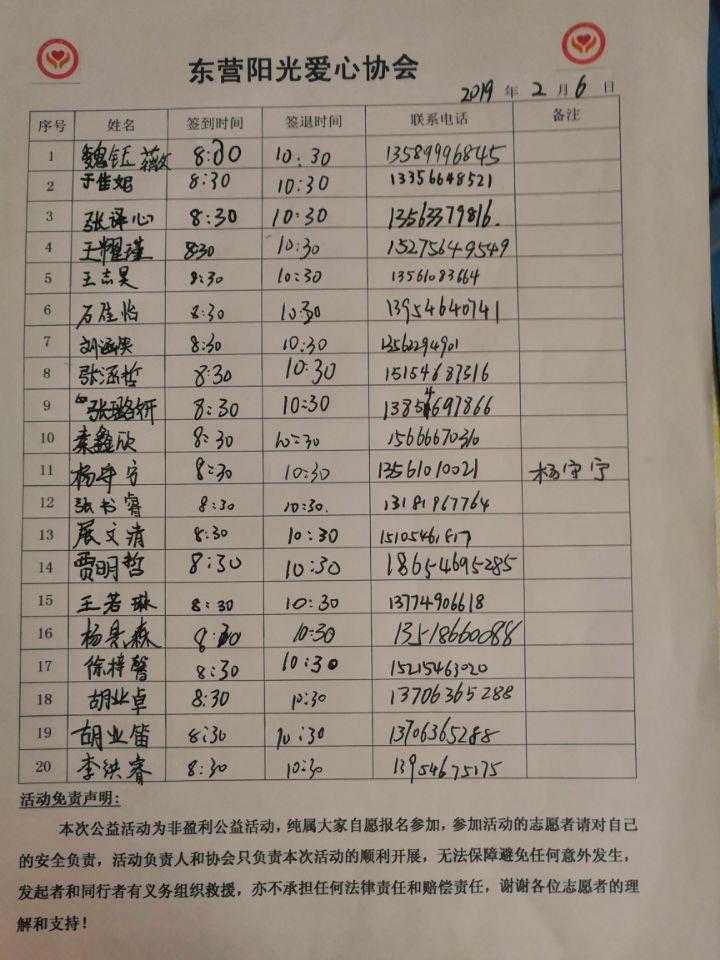 东营阳光爱心协会
2019 年 2 月 6 日
序号 姓名 签到时间 签退时间 联系电话 备注
1 魏钰薇 8:30 10:30 13589996845
2 于佳妮 8:30 10:30 13356648521
3 张译心 8:30 10:30 13563379816.
4 王耀瑾 8:30 10:30 15275649549
5 王志昊 8:30 10:30 13561083664
6 石佳怡 8:30 10:30 13954640741
7 8:30 10:30
8 张涵哲 8:30 10:30 15154687316
9 张璐妍 8:30 10:30 13854697866
10 秦鑫欣 8:30 10:30 15666670310
11 杨守宁 8:30 10:30 13561010021 杨守宁
12 张书睿 8:30 10:30. 13181967764
13 展文清 8:30 10:30
14 贾明哲 8:30 10:30 18654695285
15 王若琳 8:30 10:30 13774906618
16 8:30 10:30 13518660088
17 徐梓馨 8:30 10:30 15215463020
18 胡业卓 8:30 10:30 13706365288
19 胡业笛 8:30 10:30 13706365288
20 李洪睿 8:30 10:30 13954675175
活动免责声明:
本次公益活动为非盈利公益活动，纯属大家自愿报名参加，参加活动的志愿者请对自己
的安全负责，活动负责人和协会只负责本次活动的顺利开展，无法保障避免任何意外发生，
发起者和同行者有义务组织救援，亦不承担任何法律责任和赔偿责任，谢谢各位志愿者的理
解和支持！